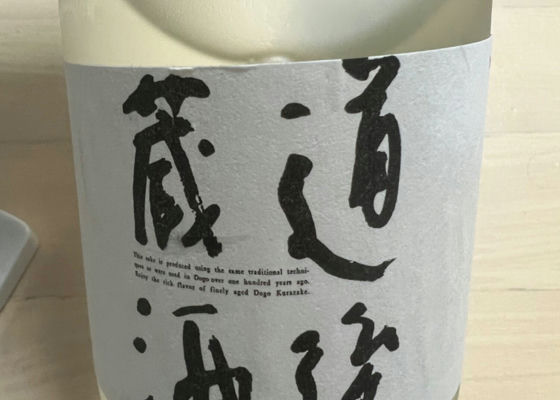 道後
蔵酒
This sake is produced using the same traditional techni-
ques as were used in Dogo over one hundred years ago.
Enjoy the rich flavor of finely aged Dogo Kurazake.